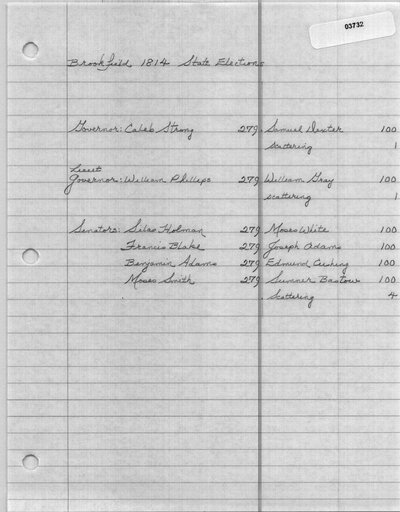 03732
Brookfield 1814 State Elections
Governor: Caleb Strong 279 Samuel Dexter 100
scattering 1
Lieut
Governor: William Phillips 279 William Gray 100
scattering 1
Senators: Silas Holman 279 Moses White 100
Francis Blake 279 Joseph Adams 100
Benjamin Adams 279 Edmund Cushing 100
Moses Smith 279 Sumner Bastow 100
Scattering 4